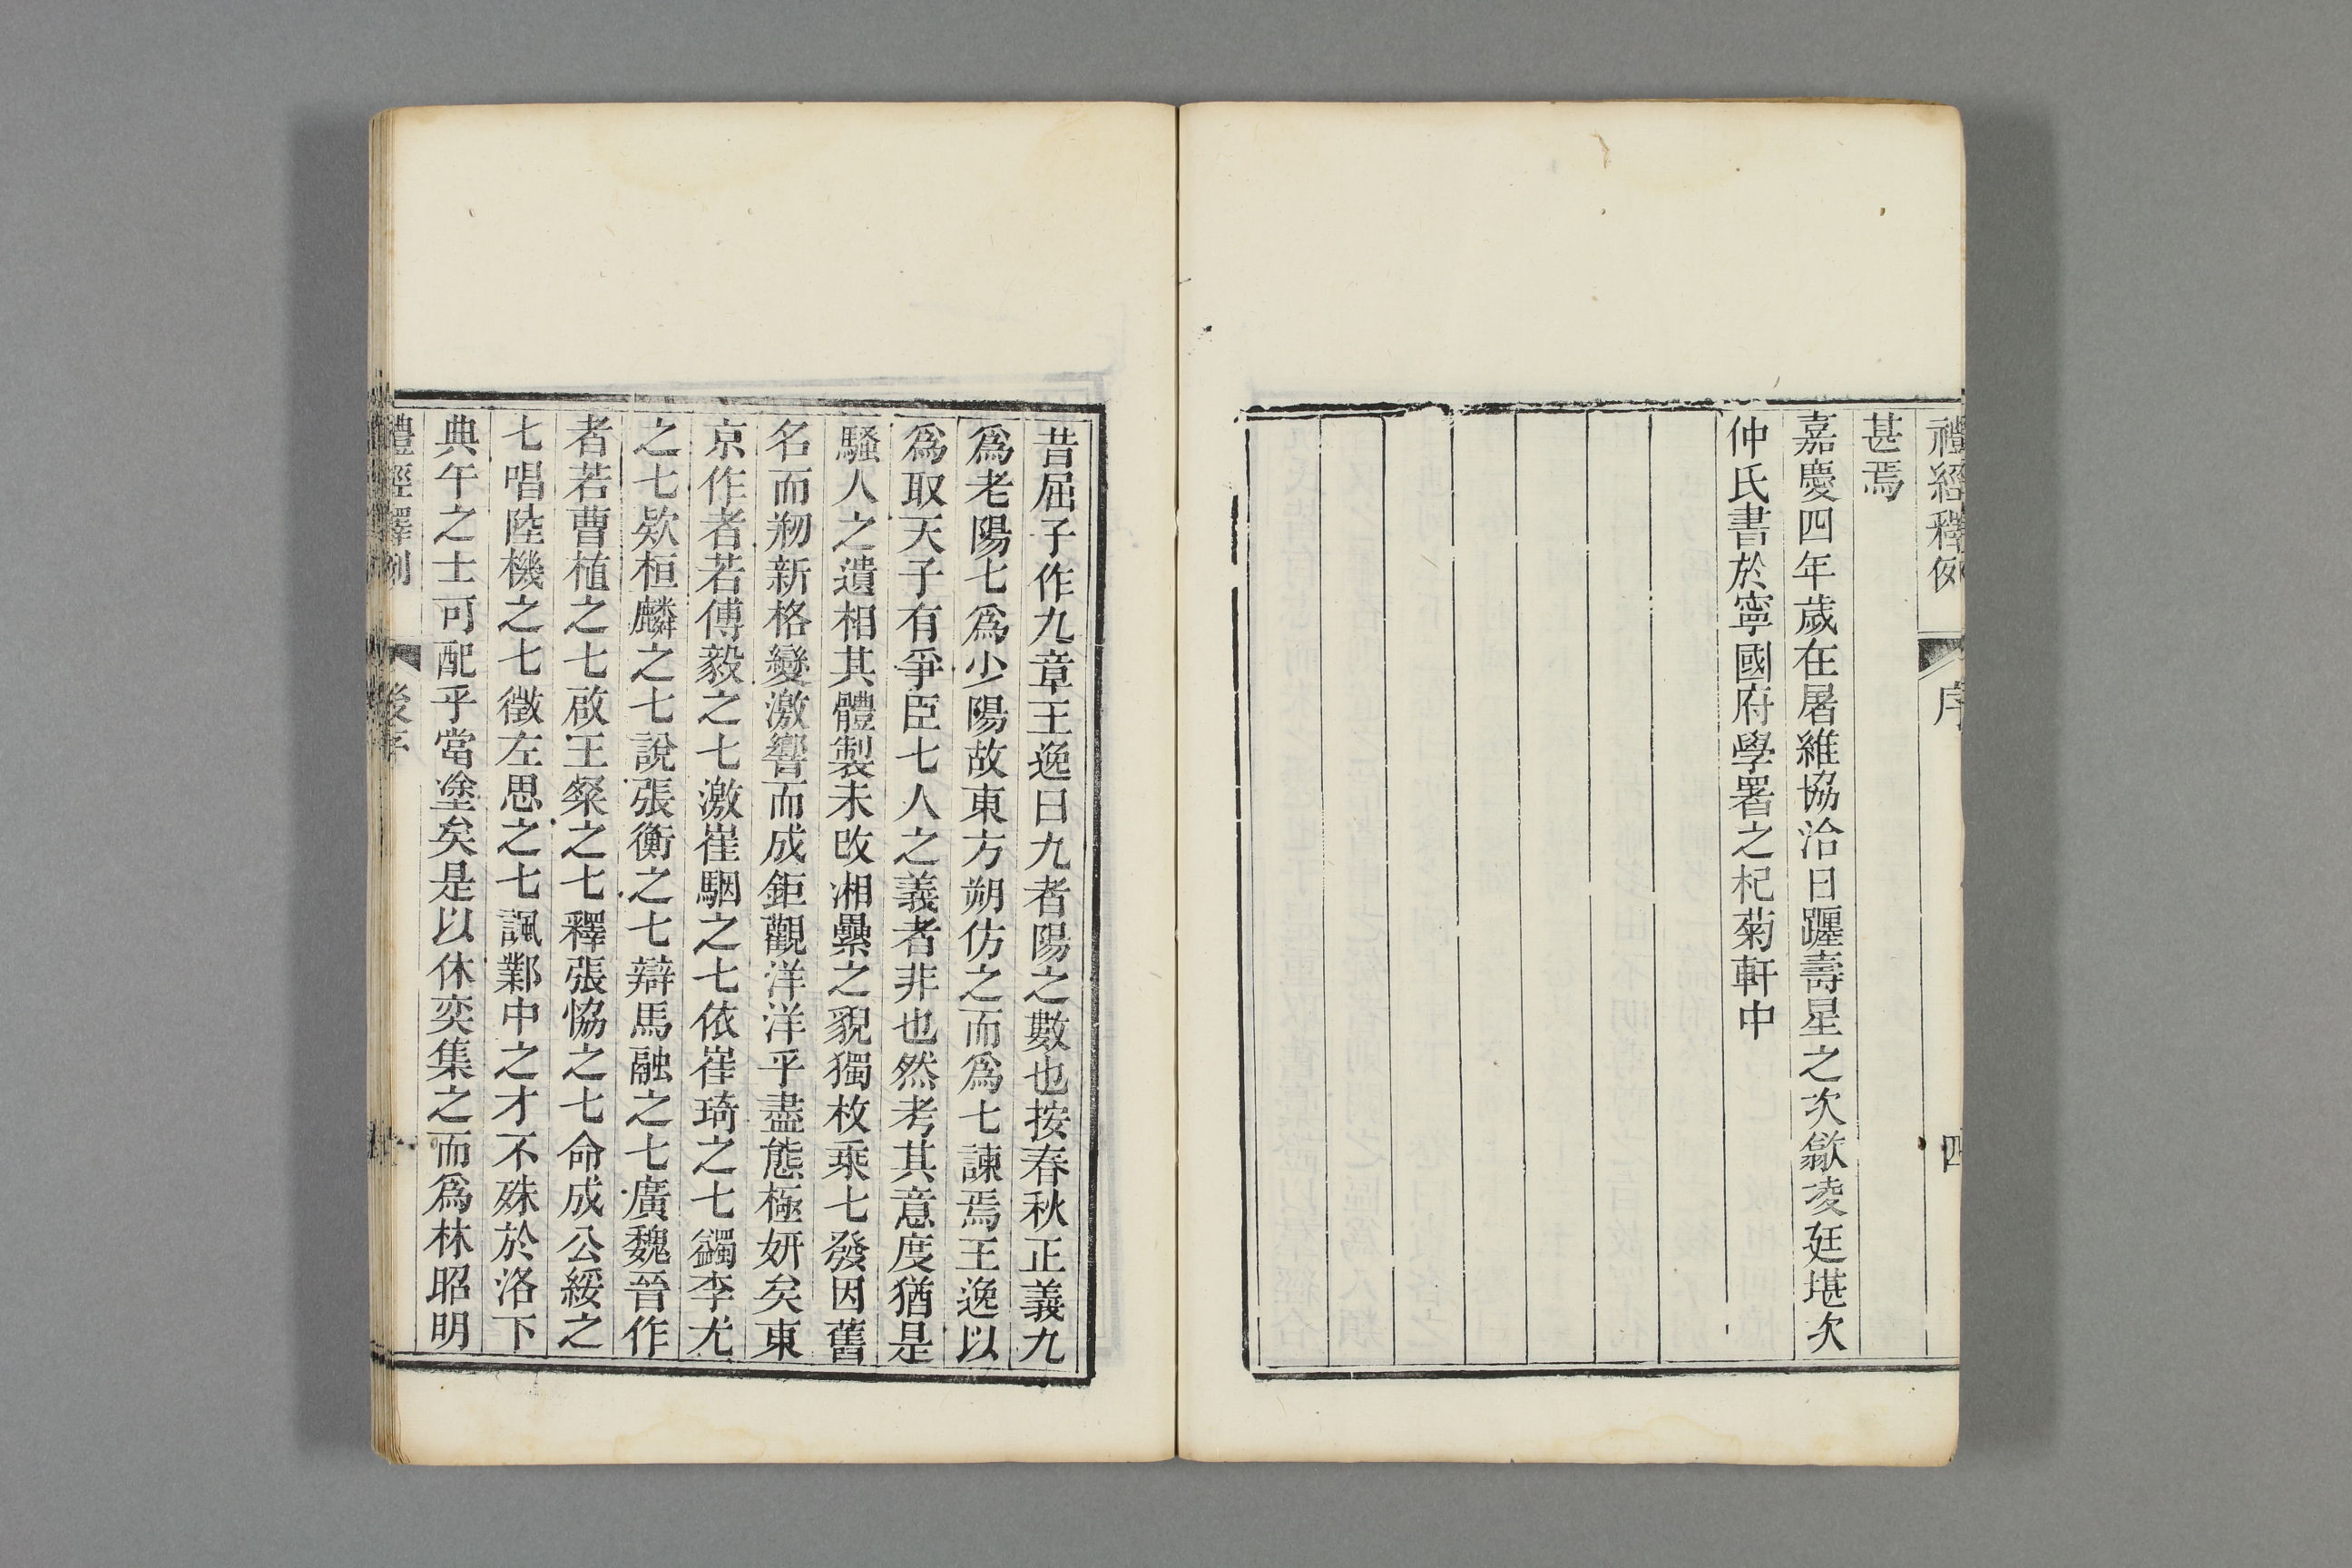 禮經釋例
序
四
甚焉
嘉慶四年歲在屠維協洽日躔壽星之次歙凌廷堪次
仲氏書於寧國府學署之杞菊軒中
昔屈子作九章王逸曰九者陽之數也按春秋正義九
爲老陽七爲少陽故東方朔仿之而爲七諫焉王逸以
爲取天子有爭臣七人之義者非也然考其意度猶是
騷人之遺相其體製未改湘纍之貌獨枚乘七發因舊
名而剙新格變激響而成鉅觀洋洋乎盡態極妍矣東
京作者若傅毅之七激崔駰之七依崔琦之七蠲李尤
之七欵桓麟之七說張衡之七辯馬融之七廣魏晉作
者若曹植之七啟王粲之七釋張恊之七命成公綏之
七唱陸機之七徵左思之七諷鄴中之才不殊於洛下
典午之士可配乎當塗矣是以休奕集之而爲林昭明
禮經釋例
後序